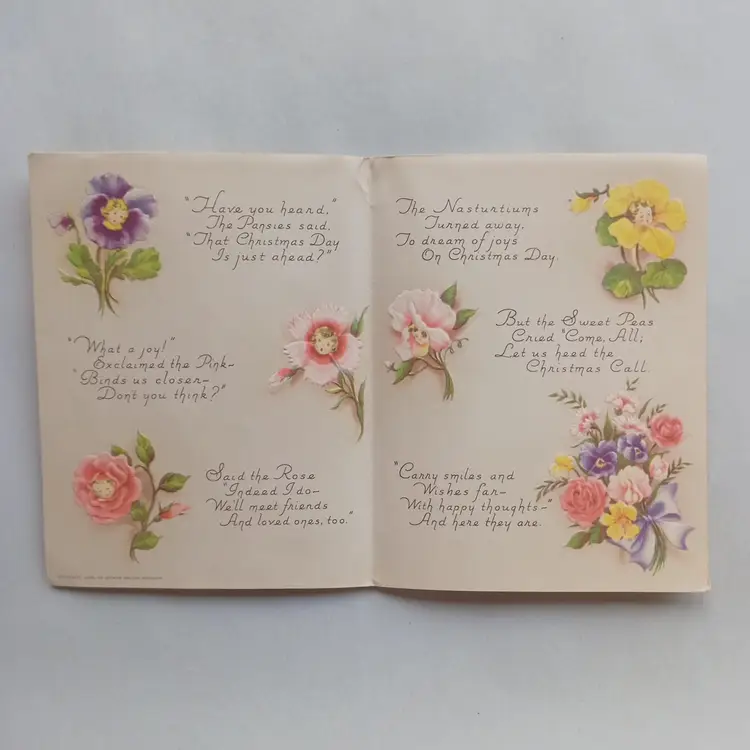 "Have you heard,"
The Pansies said,
"That Christmas Day
Is just ahead?"
"What a joy!"
Exclaimed the Pink—
"Binds us closer—
Don't you think?"
Said the Rose
"Indeed I do—
We'll meet friends
And loved ones, too."
The Nasturtiums
Turned away,
To dream of joys
On Christmas Day.
But the Sweet Peas
Cried "Come, All;
Let us heed the
Christmas Call.
"Carry smiles and
Wishes far—
With happy thoughts—"
And here they are.